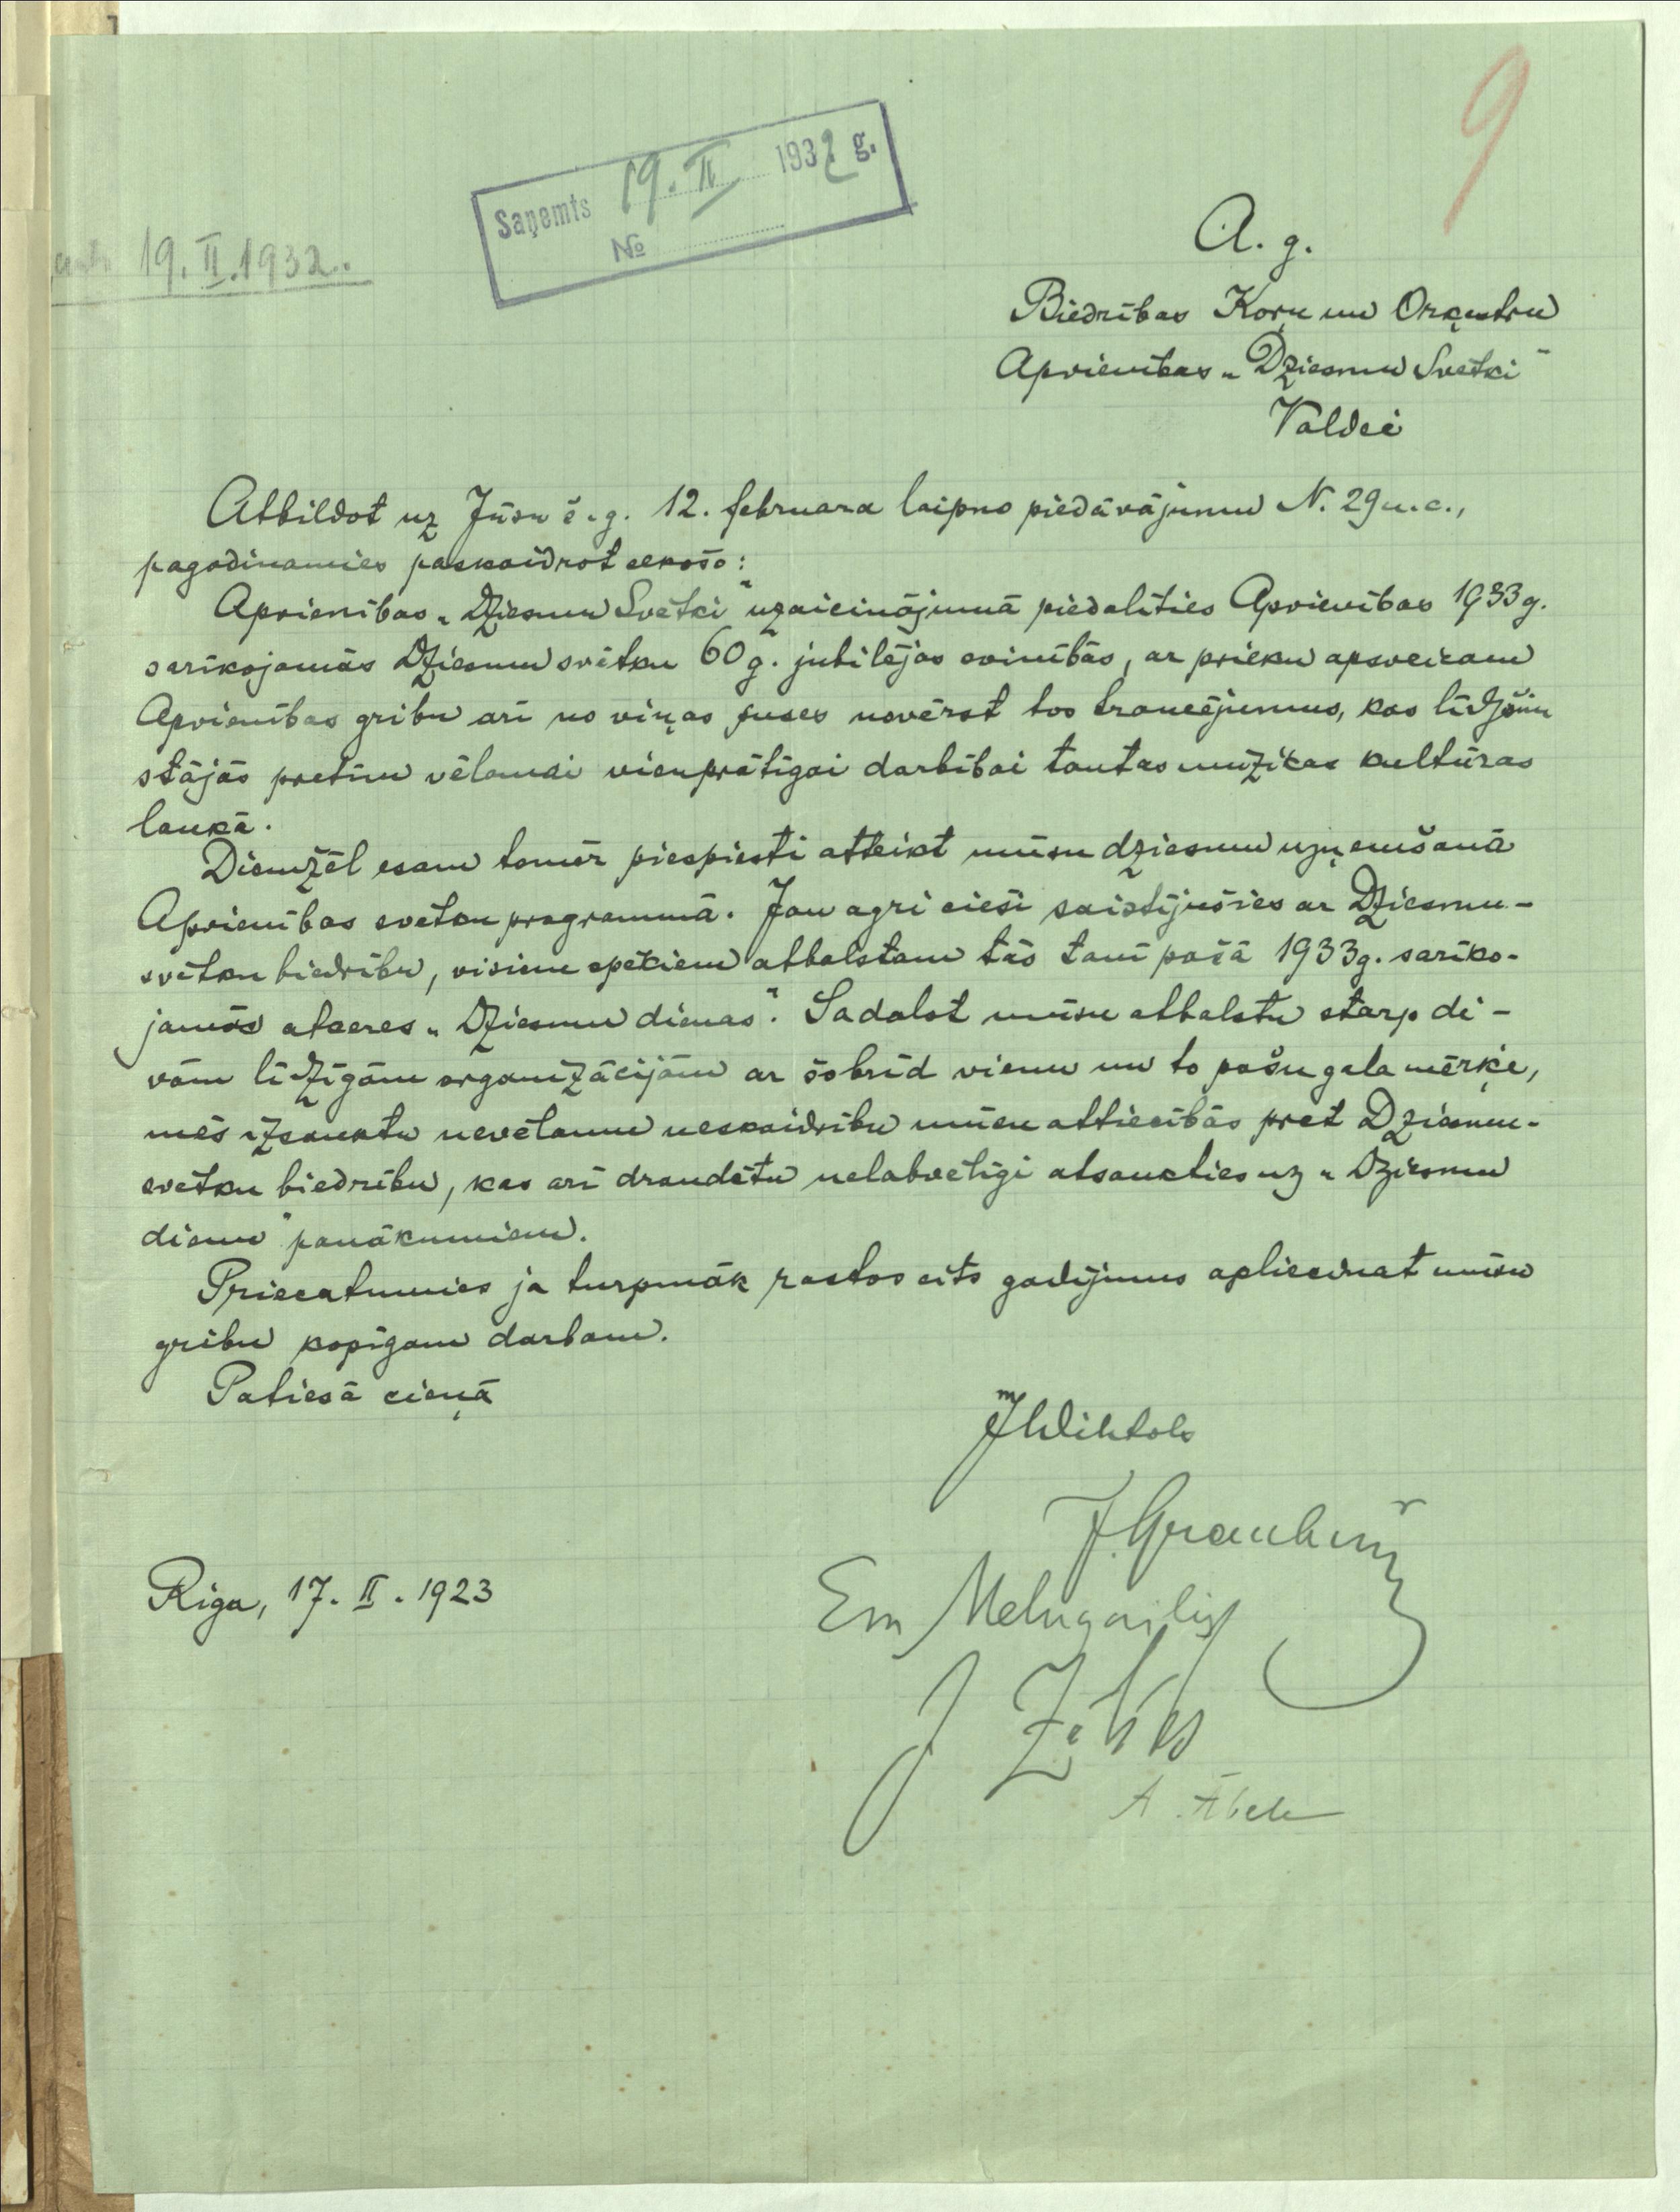 9
Saņemts 19. II 1932 g.
№
19. II. 1932.
A. g.
Biedrības Koŗu un Orķestru
Apvienības „Dziesmu Svētki"
Valdei
Atbildot uz Jūsu š. g. 12. februara laipno piedāvājumu N. 29 u. c.,
pagodinamies paskaidrot sekošo:
Apvienības „Dziesmu Svētki" uzaicinājumā piedalīties Apvienības 1933 g.
sarīkojamās Dziesmu svētku 60 g. jubilējas svinībās, ar prieku apsveicam
Apvienības gribu arī no viņas puses novērst tos traucējumus, kas līdzšim
stājās pretim vēlamai vienprātīgai darbībai tautas muzikas kultūras
laukā.
Diemžēl esam tomēr piespiesti atteikt mūsu dziesmu uzņemšanā
Apvienības svētku programmā. Jau agri cieši saistījušies ar Dziesmu-
svētku biedrību, visiem spēkiem atbalstam tās tanī pašā 1933 g. sarīko-
jamās atceres „Dziesmu dienas". Sadalot mūsu atbalstu starp di-
vām līdzīgām organizācijām ar šobrīd vienu un to pašu gala mērķi,
mēs izsauktu nevēlamu neskaidrību mūsu attiecībās pret Dziesmu-
svētku biedrību, kas arī draudētu nelabvēlīgi atsaukties uz „Dziesmu
dienu" panākumiem.
Priecatumies ja turpmāk rastos cits gadījums apliecinat mūsu
gribu kopīgam darbam.
Patiesā cieņā
JWihtols
J. Graubiņ
Riga, 17. II. 1923
Em Melngailis
J Zālīts
A. Ābele